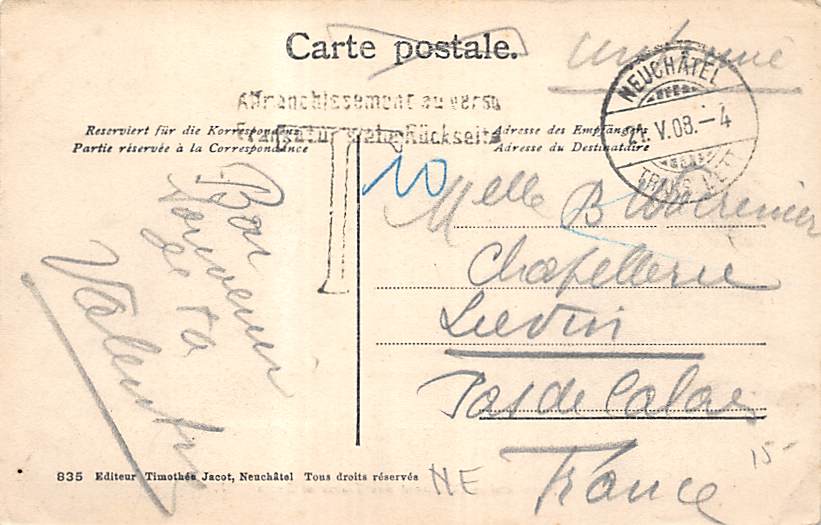 Carte postale.
NEUCHÂTEL
21. V. 08. - 4
Affranchissement au verso
Frankatur siehe Rückseite
Reserviert für die Korrespondenz
Partie réservée à la Correspondance
Adresse des Empfängers
Adresse du Destinataire
T
10
Bon
souvenir
de ta
Valentine
Melle B
Chapellerie
Lievin
Pas de Calais
France
835 Editeur Timothée Jacot, Neuchâtel Tous droits réservés
NE
15-